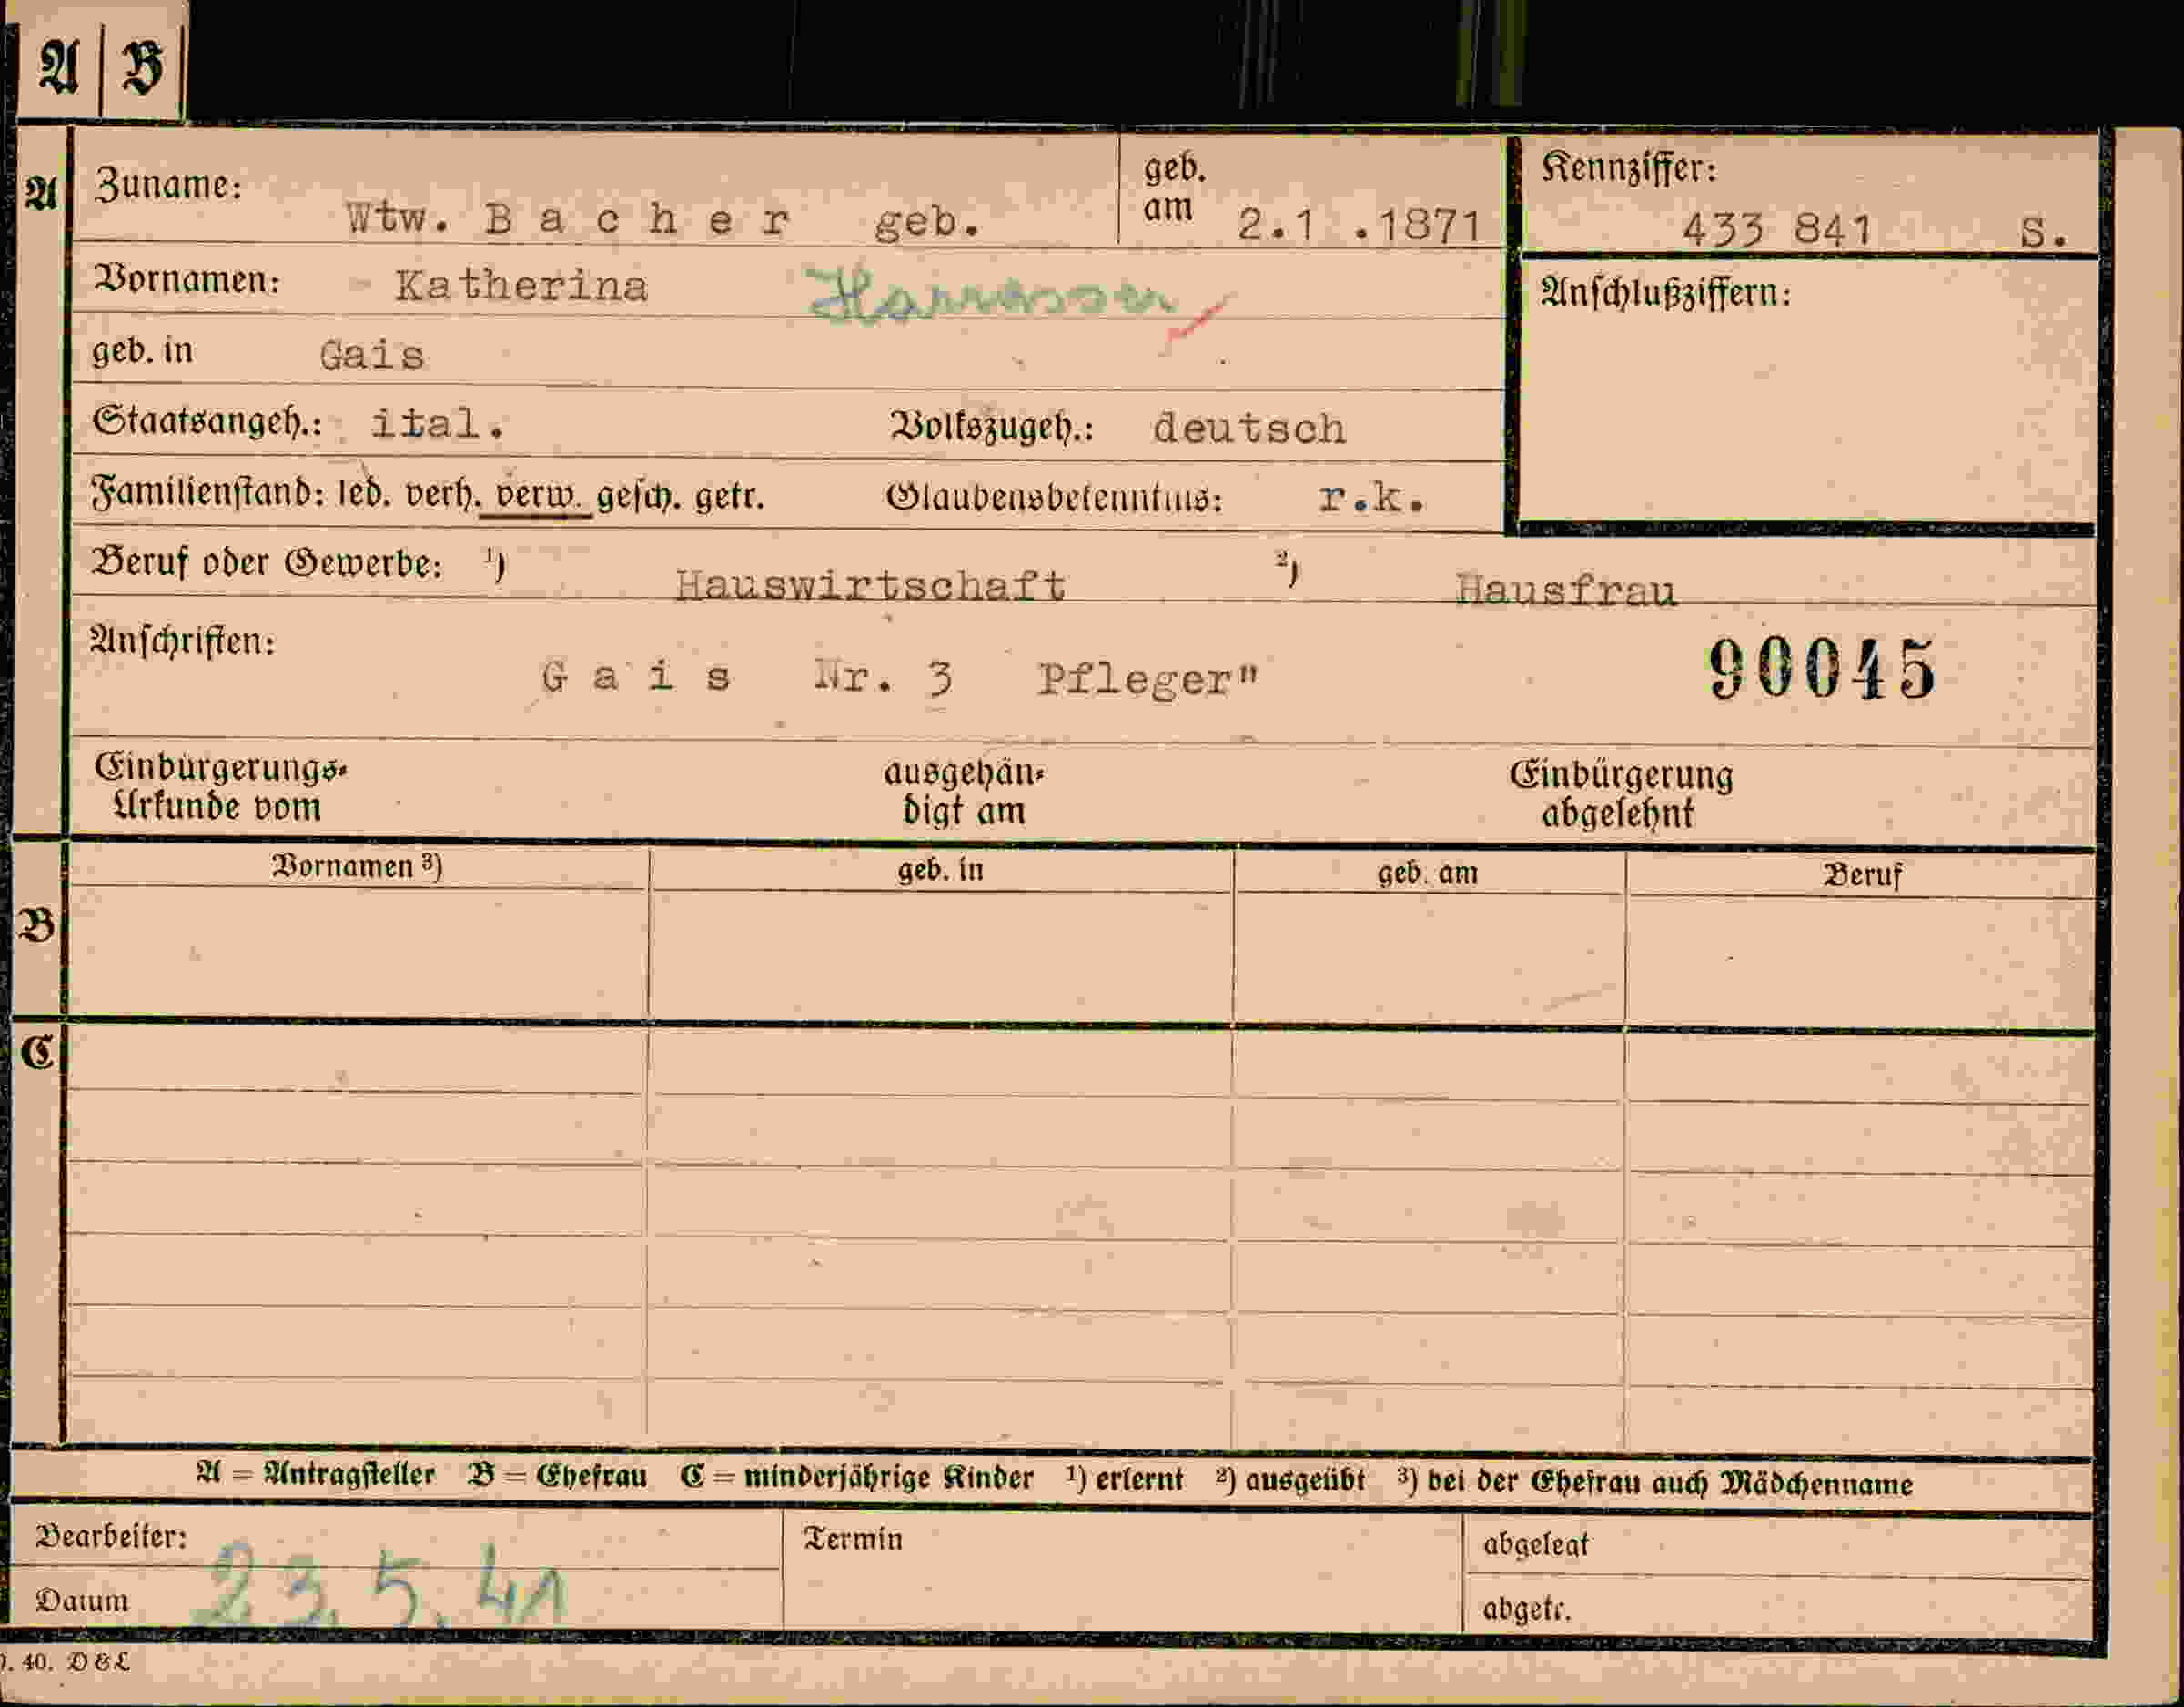 A B
A Zuname: Wtw. B a c h e r geb. geb. am 2.1 .1871 Kennziffer: 433 841 S.
Vornamen: Katherina Anschlußziffern:
geb. in Gais
Staatsangeh.: ital. Volkszugeh.: deutsch
Familienstand: led. verh. verw. gesch. getr. Glaubensbekenntnis: r.k.
Beruf oder Gewerbe: ¹) Hauswirtschaft ²) Hausfrau
Anschriften: G a i s Nr. 3 Pfleger" 90045
Einbürgerungs-Urkunde vom ausgehändigt am Einbürgerung abgelehnt
Vornamen ³) geb. in geb. am Beruf
B
C
A = Antragsteller B = Ehefrau C = minderjährige Kinder ¹) erlernt ²) ausgeübt ³) bei der Ehefrau auch Mädchenname
Bearbeiter: Termin abgelegt
Datum 23.5.41 abgetr.
40. D & L